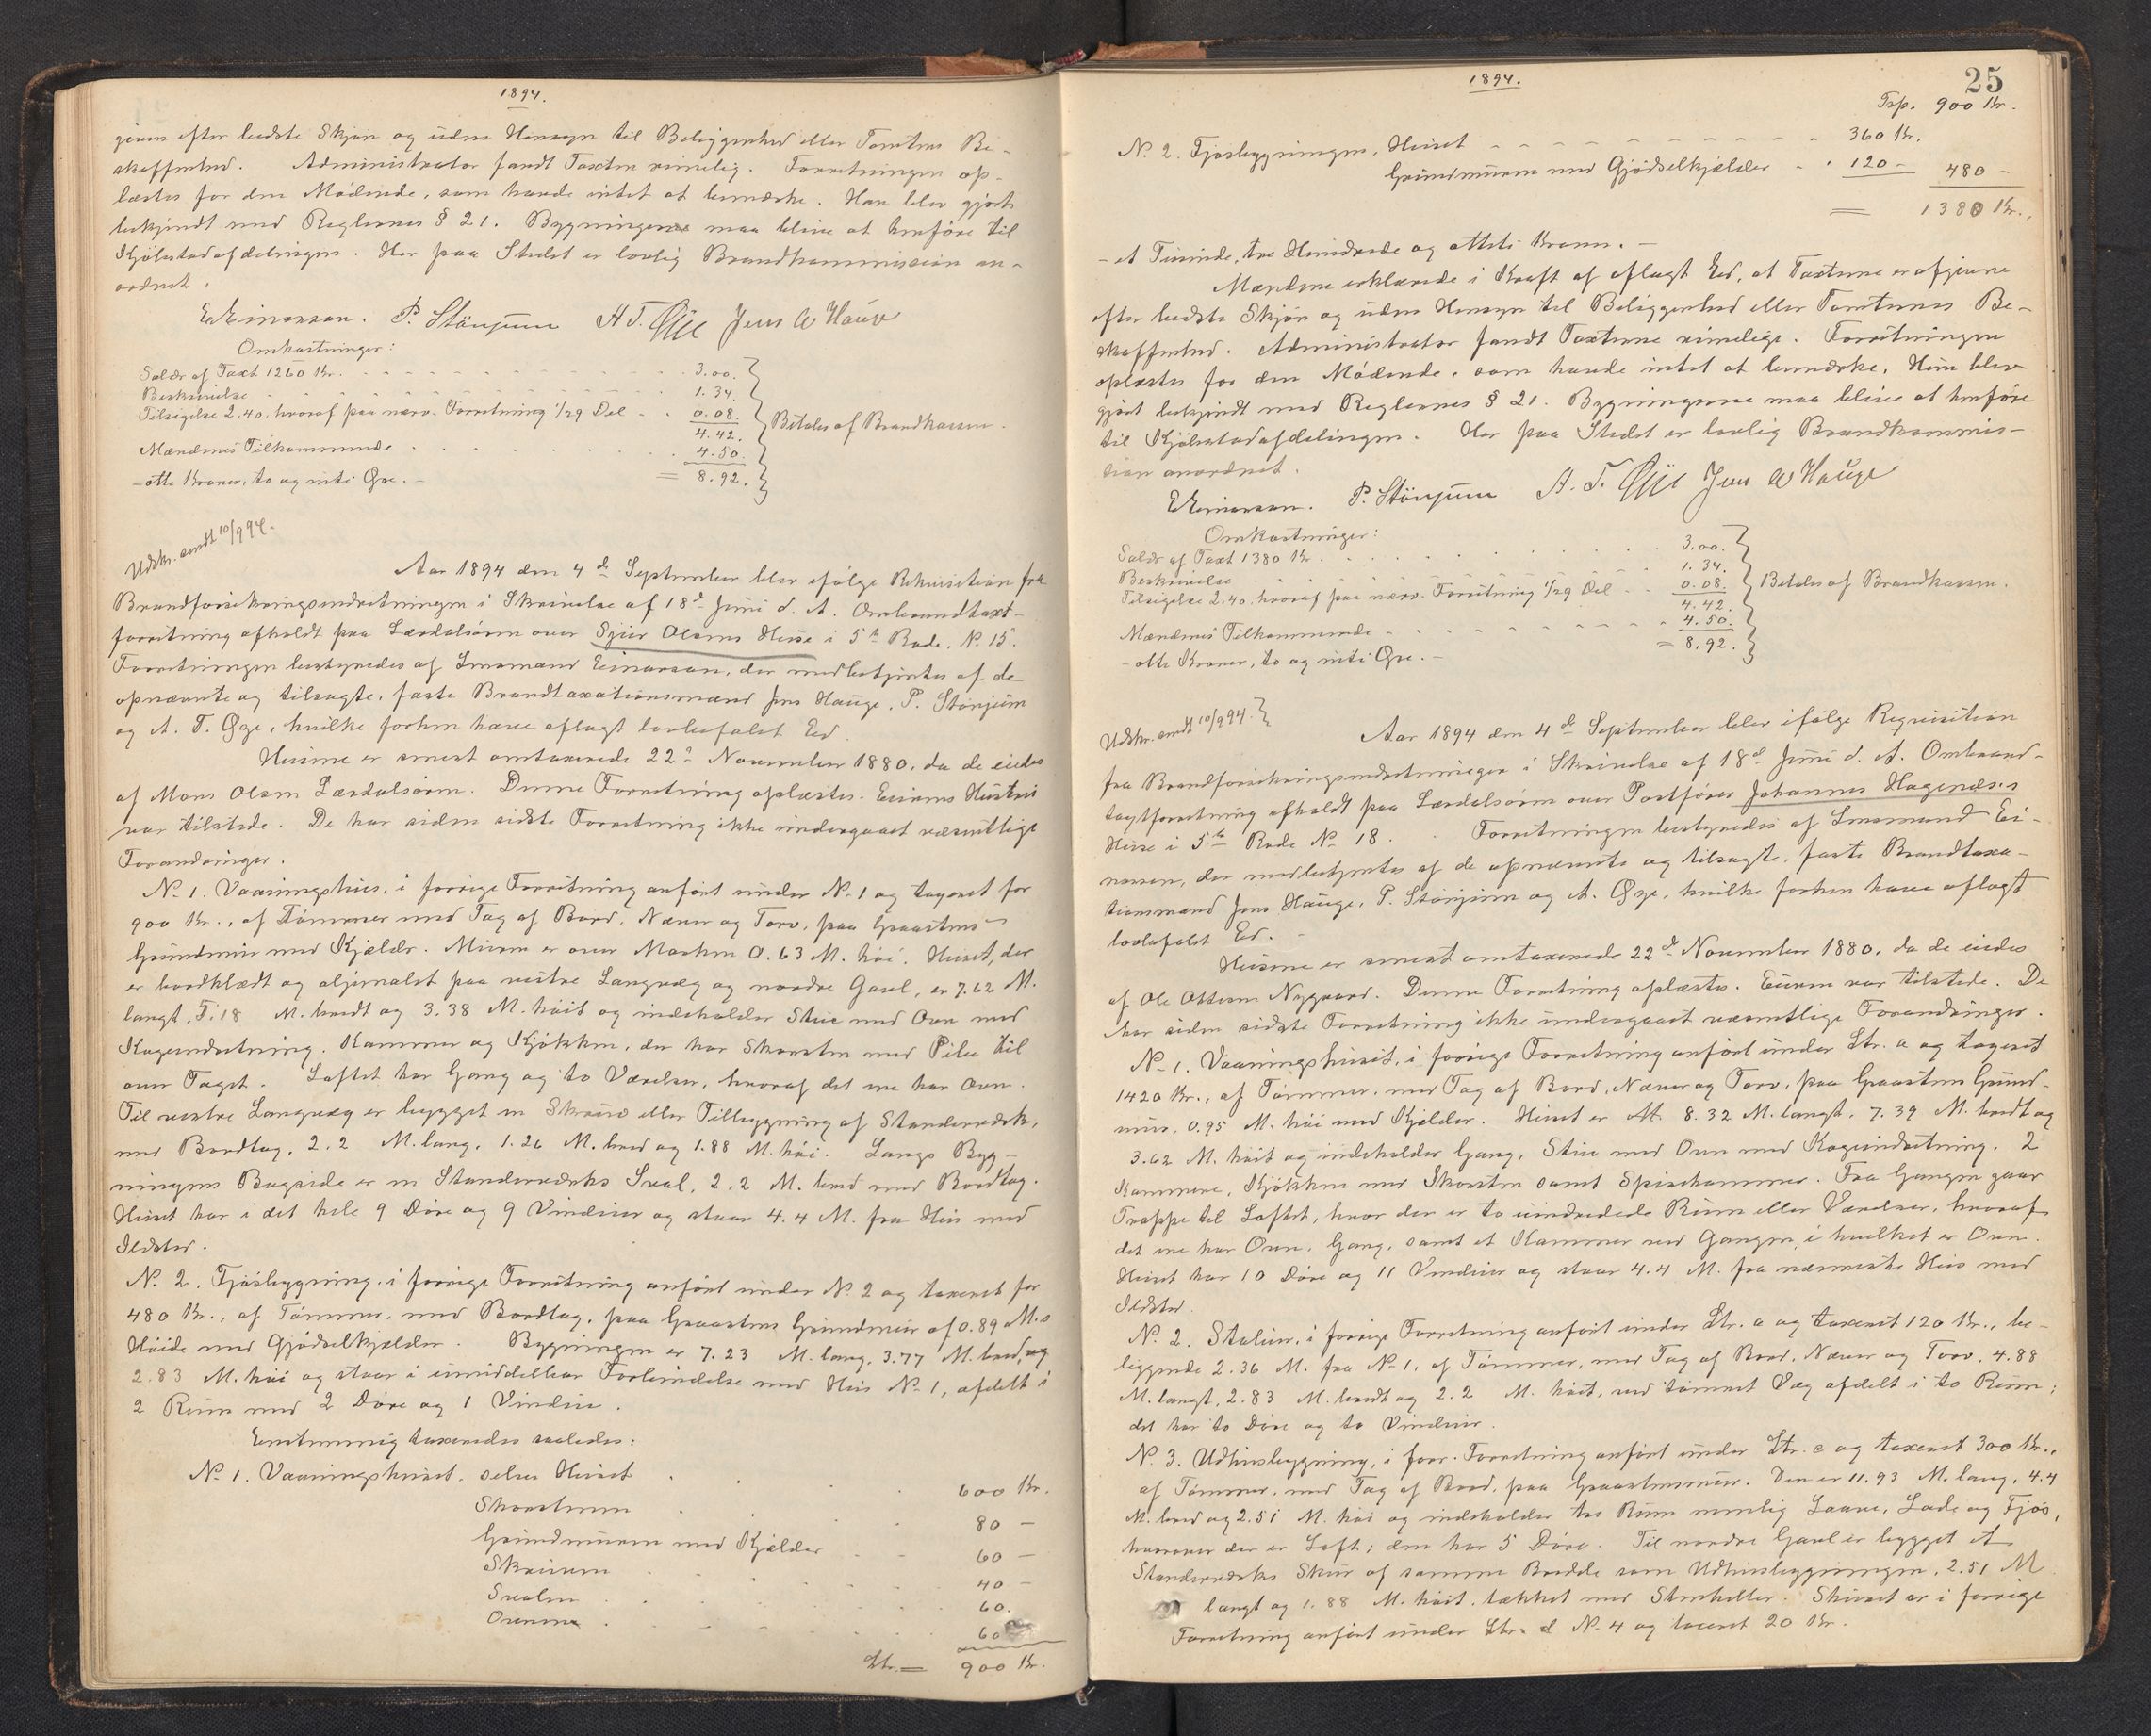 1894.
given efter bedste Skjøn og uden Hensyn til Beliggenhed eller Tomtens Be-
skaffenhed. Administrator fandt Taxten rimelig. Forretningen op-
læstes for den Mödende, som havde intet at bemærke. Han blev gjort
bekjendt med Reglernes § 21. Bygningerne maa blive at henføre til
Kjöbstadafdelingen. Her paa Stedet er lovlig Brandkommission an-
ordnet.
E. Einarsen. P. Stönjum A T. Øije Jens A Hauge
Omkostninger:
Salær af Taxt 1260 Kr. 3.00.
Beskrivelse 1.34.
Tilsigelse 2.40. hvoraf paa nærv. Forretning 1/29 Del 0.08.
4.42. Betales af Brandkassen.
Mændenes Tilkommende 4.50.
- otte Kroner, to og niti Øre. - = 8.92.
Udskr. sendt 10/9 94.
Aar 1894 den 4de September blev ifølge Rekvisition fra
Brandforsikringsindretningen i Skrivelse af 18de Juni d. A. Ombrandtaxt-
forretning afholdt paa Lærdalsören over Sjur Olsens Huse i 5te Rode, No. 15.
Forretningen bestyredes af Lensmand Einarsen, der medbetjentes af de
opnævnte og tilsagte, faste Brandtaxationsmænd Jens Hauge, P. Stönjum
og A. T. Øye, hvilke forhen have aflagt lovbefalet Ed.
Husene er senest omtaxerede 22de November 1880, da de eiedes
af Mons Olsen Lærdalsören. Denne Forretning oplæstes. Eierens Hustru
var tilstede. De har siden sidste Forretning ikke undergaaet væsentlige
Forandringer.
No. 1. Vaaningshus, i forrige Forretning anfört under No. 1 og taxeret for
900 Kr., af Tömmer med Tag af Bord, Næver og Torv, paa Graastens
Grundmur med Kjælder. Muren er over Marken 0.63 M. höi. Huset, der
er bordklædt og oljemalet paa vestre Langvæg og nordre Gavl, er 7.62 M.
langt, 5.18 M. bredt og 3.38 M. höit og indeholder Stue med Ovn med
Kogeindretning, Kammer og Kjökken, der har Skorsten med Pibe til
over Taget. Loftet har Gang og to Værelser, hvoraf det ene har Ovn.
Til vestre Langvæg er bygget en Skruv eller Tilbygning af Standerværk,
med Bordtag, 2.2 M. lang, 1.26 M. bred og 1.88 M. höi. Langs Byg-
ningens Bagside er en Standerværks Sval, 2.2 M. bred med Bordtag.
Huset har i det hele 9 Döre og 9 Vinduer og staar 4.4 M. fra Hus med
Ildsted.
No. 2. Fjösbygning, i forrige Forretning anfört under No. 2 og taxeret for
480 Kr., af Tömmer, med Bordtag, paa Graastens Grundmur af 0.89 M.s
Höide med Gjödselkjælder. Bygningen er 7.23 M. lang, 3.77 M. bred, og
2.83 M. höi og staar i umiddelbar Forbindelse med Hus No. 1, afdelt i
2 Rum med 2 Döre og 1 Vindue.
Enstemmig taxeredes saaledes:
No. 1. Vaaningshuset, selve Huset 600 Kr.
Skorstenen 80 -
Grundmuren med Kjælder 60 -
Skruven 40 -
Svalen 60.
Ovnene 60
Ltr. = 900 Kr.
1894.
25
Trsp. 900 Kr.
No. 2. Fjösbygningen, Huset 360 Kr.
Grundmuren med Gjödselkjælder 120 - 480 -
= 1380 Kr.,
- et Tusinde, tre Hundrede og otteti Kroner. -
Mændene erklærede i Kraft af aflagt Ed, at Taxterne er afgivne
efter bedste Skjön og uden Hensyn til Beliggenhed eller Tomternes Be-
skaffenhed. Administrator fandt Taxterne rimelige. Forretningen
oplæstes for den Mödende, som havde intet at bemærke. Hun blev
gjort bekjendt med Reglernes § 21. Bygningerne maa blive at henföre
til Kjöbstadafdelingen. Her paa Stedet er lovlig Brandkommis-
sion anordnet.
E. Einarsen. P. Stönjum A. T. Øije Jens A Hauge
Omkostninger:
Salær af Taxt 1380 Kr. 3.00.
Beskrivelse 1.34.
Tilsigelse 2.40. hvoraf paa nærv. Forretning 1/29 Del 0.08. Betales af Brandkassen.
4.42.
Mændenes Tilkommende 4.50.
- otte Kroner, to og niti Øre. - = 8.92.
Udskr. sendt 10/9 94.
Aar 1894 den 4de September blev ifölge Reqvisition
fra Brandforsikringsindretningen i Skrivelse af 18de Juni d. A. Ombrand-
taxtforretning afholdt paa Lærdalsören over Postförer Johannes Hagenæs's
Huse i 5te Rode No. 18. Forretningen bestyredes af Lensmand Ei-
narsen, der medbetjentes af de opnævnte og tilsagte, faste Brandtaxa-
tionsmænd Jens Hauge, P. Stönjum og A. Øye, hvilke forhen have aflagt
lovbefalet Ed. -
Husene er senest omtaxerede 22de November 1880, da de eiedes
af Ole Ottesen Nygaard. Denne Forretning oplæstes. Eieren var tilstede. De
har siden sidste Forretning ikke undergaaet væsentlige Forandringer.
No. 1. Vaaningshuset, i forrige Forretning anfört under Ltr. a og taxeret
1420 Kr., af Tömmer, med Tag af Bord, Næver og Torv, paa Graastens Grund-
mur, 0.95 M. höi med Kjælder. Huset er 8.32 M. langt, 7.39 M. bredt og
3.62 M. höit og indeholder Gang, Stue med Ovn med Kogeindretning, 2
Kammere, Kjökken med Skorsten samt Spisekammer. Fra Gangen gaar
Trappe til Loftet, hvor der er to uindredede Rum eller Værelser, hvoraf
det ene har Ovn, Gang, samt et Kammer ved Gangen, i hvilket er Ovn.
Huset har 10 Döre og 11 Vinduer og staar 4.4 M. fra nærmeste Hus med
Ildsted.
No. 2. Stabur, i forrige Forretning anfört under Ltr. a og taxeret 120 Kr., be-
liggende 2.36 M. fra No. 1, af Tömmer, med Tag af Bord, Næver og Torv, 4.88
M. langt, 2.83 M. bredt og 2.2 M. höit, ved tömret Væg afdelt i to Rum;
det har to Döre og to Vinduer.
No. 3. Udhusbygning, i forr. Forretning anfört under Ltr. c og taxeret 300 Kr.,
af Tömmer, med Tag af Bord, paa Graastensmur. Den er 11.93 M. lang, 4.4
M. bred og 2.51 M. höi og indeholder tre Rum nemlig Laave, Lade og Fjös,
hvorover der er Loft; den har 5 Döre. Til nordre Gavl er bygget et
Standerværks Skur af samme Bredde som Udhusbygningen, 2.51 M
langt og 1.88 M. höit, tækket med Stenheller. Skuret er i forrige
Forretning anfört under Ltr. d No. 4 og taxeret 20 Kr.